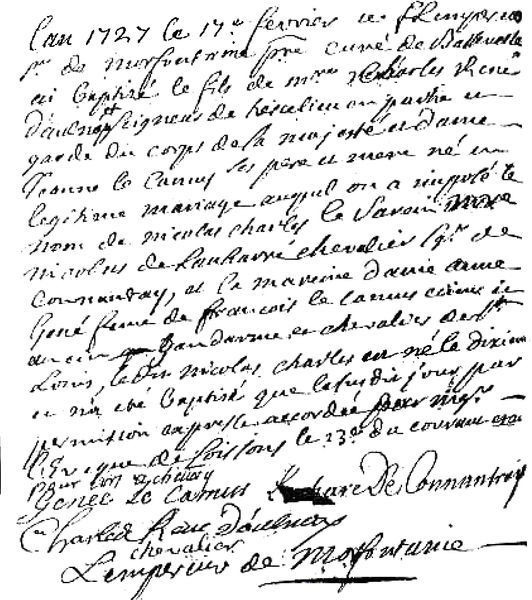 L'an 1727 le 17e fevrier je
Sr de Morfontaine pre curé de
ai baptizé le fils de mre Charles René
d'aulnay seigneur de en partie et
garde du corps de Sa majesté et dame
Jeanne le Camus ses pere et mere né en
legitime mariage auquel on a imposé le
nom de nicolas charles le parain mre
nicolas de chevalier sgr de
connantray, et la mareine dame anne
Gené feme de francois le camus
ancien gendarme et chevalier de St
Louis, le dit nicolas charles est né le dixieme
et n'a eté baptisé que le susdit jour par
permission expresse accordée par mgr
l'Eveque de Soissons le 23e du courant
pour
Genée Le Camus De Connantray
Charles Rene D'aulnay
chevalier
Lempereur de Morfontaine